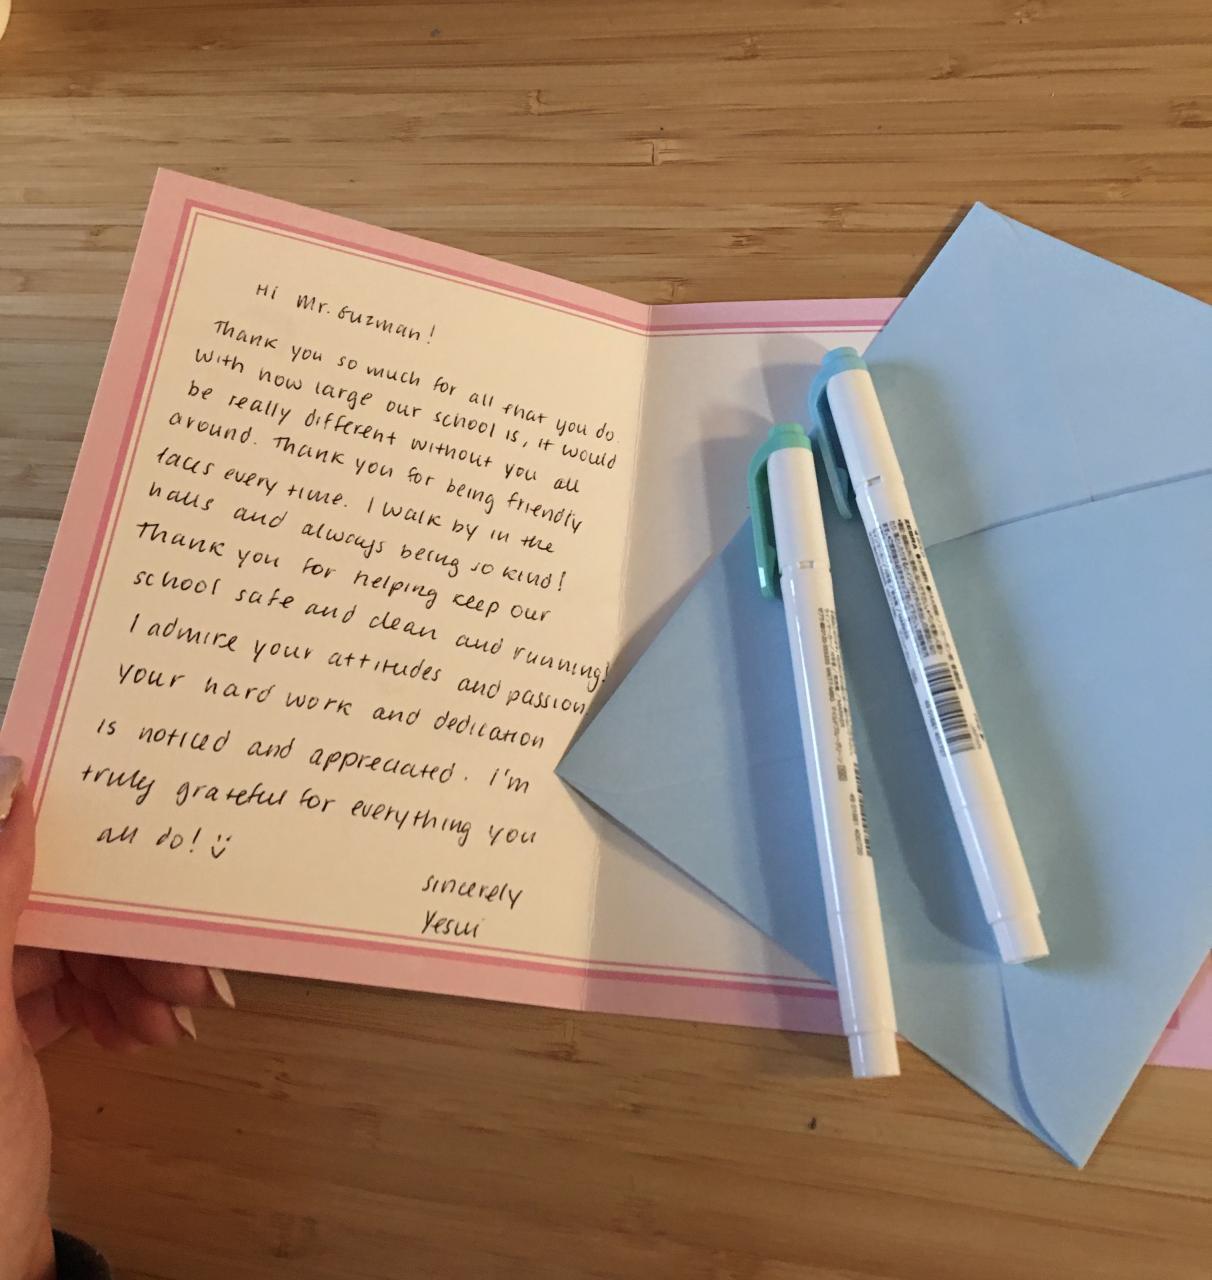 Hi Mr. Guzman!
Thank you so much for all that you do.
With how large our school is, it would
be really different without you all
around. Thank you for being friendly
faces every time. I walk by in the
halls and always being so kind!
Thank you for helping keep our
school safe and clean and running!
I admire your attitudes and passion
your hard work and dedication
is noticed and appreciated. I'm
truly grateful for everything you
all do! :)
sincerely
Yesui